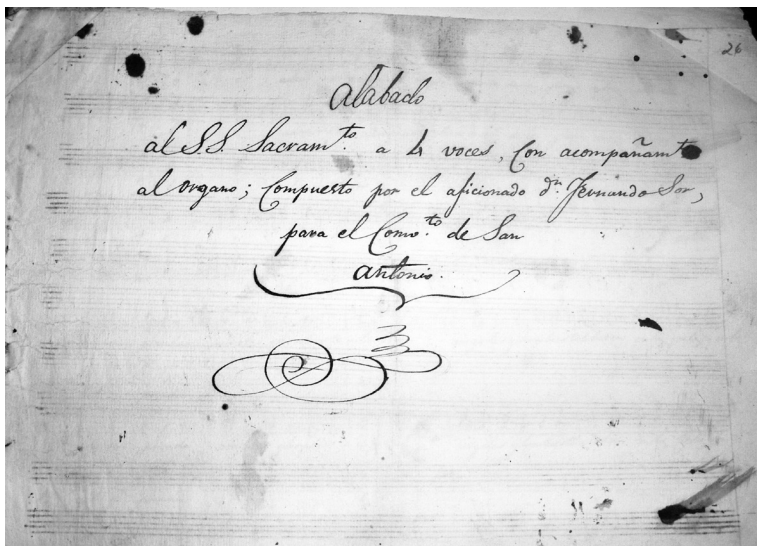 26
Alabado
al S.S. Sacram.to a 4 voces, Con acompañam.to
al organo; Compuesto por el aficionado dn. Fernando Sor,
para el Conv.to de San
Antonio.